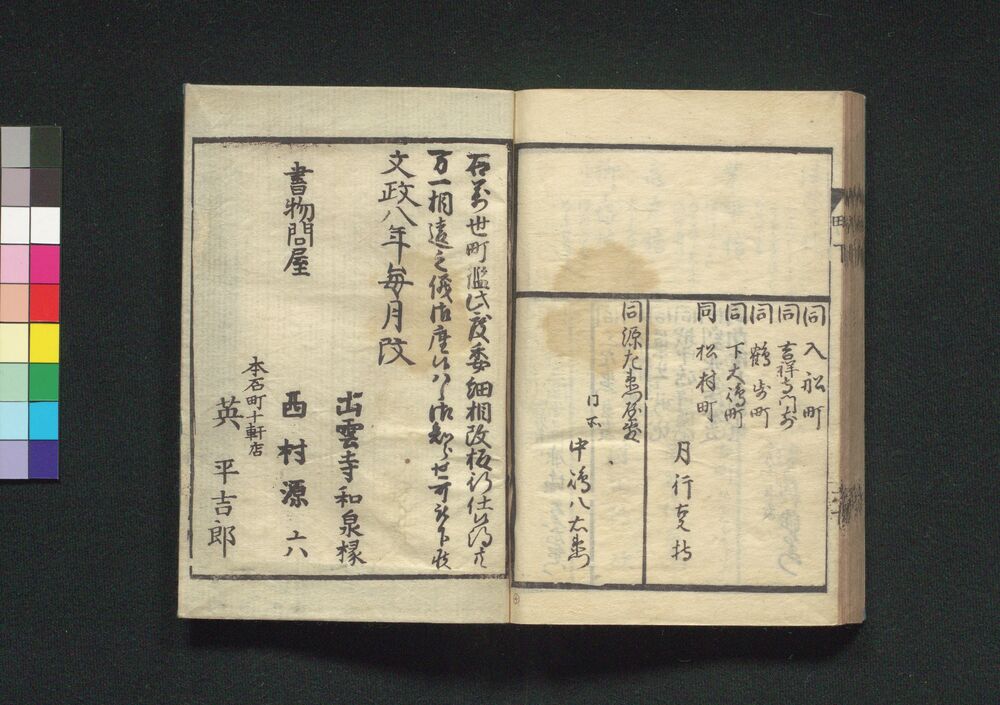 同 入舩町
同 吉祥寺門前
同 鶴歩町
同 下大嶋町
同 松村町
月行事持
同 源左衛門屋敷
同所
中嶋八右衛門
右萬世町鑑此度委細相改板行仕候得共
万一相違之儀御座候ハヽ御知らせ可被下候
文政八年毎月改
書物問屋
出雲寺和泉掾
西村源六
本石町十軒店
英 平吉郎
田 下